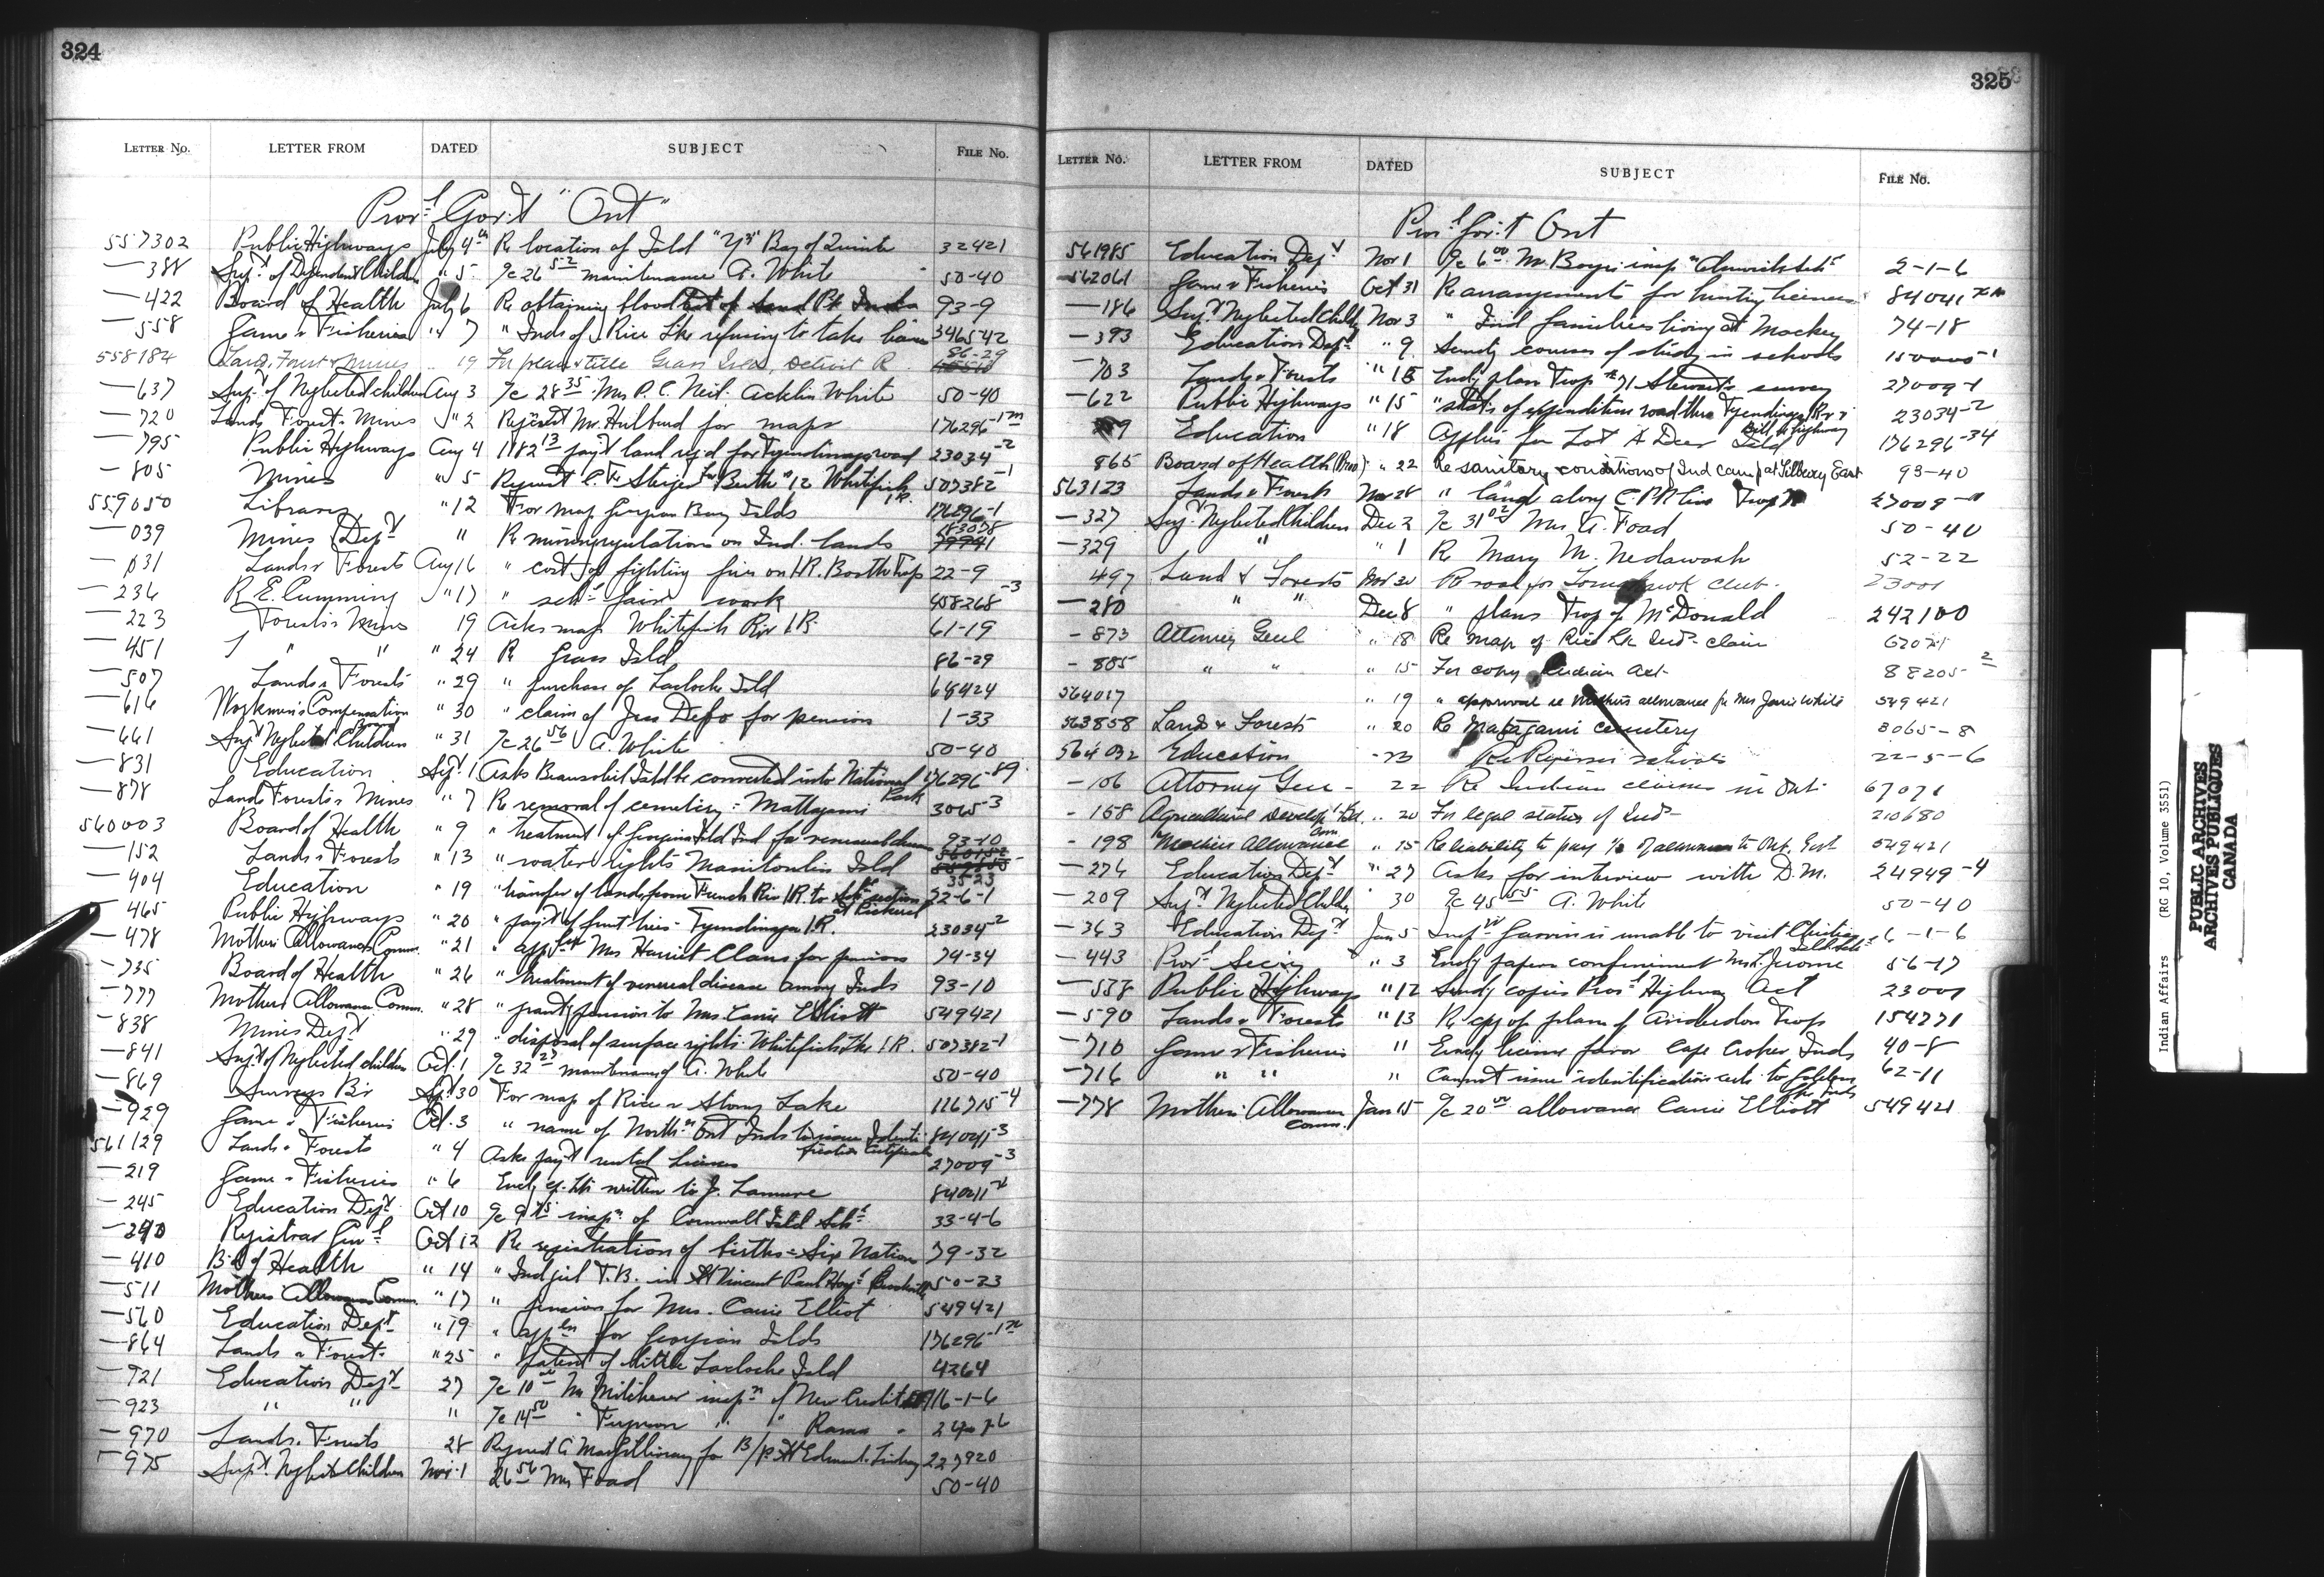 324
LETTER No. LETTER FROM DATED SUBJECT FILE No.
Prov.l Gov.t "Ont"
557302 Public Highways July 4th Re location of Isld "Y" Bay of Quinte 32421
—388 Sup.t of Dependent Children " 5 7c 26 52 maintenance A. White 50-40
—422 Board of Health July 6 Re obtaining blood 93-9
—558 Game & Fisheries " 7 " Inds of Rice Lke refusing to take 346542
558184 Land, Forest & Mines " 19 For plan & title Grass Isld, Detroit R 86-29
—637 Sup.t of Neglected Children Aug 3 7c 28 35 Mrs P. C. Neil Acklin White 50-40
—720 Lands Forest & Mines " 2 Request Mr. Hulburd for maps 176296-1
—795 Public Highways Aug 4 1182 13 pay't land req'd for Tyendinaga road 23034-2
—805 Mines " 5 Request C. F. Berth 12 Whitefish I.R. 507382-1
559050 Library " 12 For map Georgian Bay Islds 176296-1
039 Mines Dep.t " Re mining regulations on Ind. lands 183078
—031 Lands & Forests Aug 16 " cost of fighting fires on I.R. Booth Twp 22-9
—236 R. E. Cumming " 17 " sch.l fair work 458268-3
—223 Forests & Mines 19 Asks map Whitefish Riv I.R. 61-19
—451 " " " 24 Re Grass Isld 86-29
—507 Lands & Forests " 29 " purchase of Lacloche Isld 68424
—616 Workmen's Compensation Board " 30 " claim of Jess Debo for pension 1-33
—661 Sup.t Neglected Children " 31 7c 26 56 A. White 50-40
—831 Education Sept 1 Asks Beausoleil Isld be converted into National Park 176296-89
—878 Lands Forests & Mines " 7 Re removal of cemetery - Mattagami 3065-3
560003 Board of Health " 9 " treatment of Georgina Isld Ind for venereal disease 93-10
—152 Lands & Forests " 13 " water rights Manitoulin Isld 3523
—404 Education " 19 " transfer of lands from French Riv I.R. to sch.l section at Pickerel 22-6-1
—465 Public Highways " 20 " pay't of fruit trees - Tyendinaga I.R. 23034-2
—478 Mothers Allowance Comm. " 21 " app. Mrs Harriet Claus for pension 74-34
—735 Board of Health " 26 " treatment of venereal disease among Inds 93-10
—777 Mothers Allowance Comm. " 28 " grant'g pension to Mrs. Carrie Elliott 549421
—838 Mines Dep.t " 29 " disposal of surface rights Whitefish Lke I.R. 507382-1
—841 Sup.t of Neglected Children Oct. 1 7c 32 27 maintenance of A. White 50-40
—869 Surveys Br Sept 30 For map of Rice & Stony Lake 116715-4
—929 Game & Fisheries Oct. 3 " name of North.n Ont Inds to issue Identification Certificate 84041-3
561129 Lands & Forests " 4 Asks pay't rental licenses 27009-3
—219 Game & Fisheries " 6 Encl'g cp. ltr written to J. Lamure
—245 Education Dep.t Oct 10 7c 9 75 insp.n of Cornwall Isld Sch.l 33-4-6
—290 Registrar Gen.l Oct 12 Re registration of births - Six Nations 79-32
—410 B'd of Health " 14 " Ind girl T.B. in St Vincent Paul Hosp. Brockville 50-23
—511 Mothers Allowance Comm. " 17 " pension for Mrs. Carrie Elliot 549421
—560 Education Dep.t " 19 " app.ln for Georgian Islds 176296-1
—864 Lands & Forest " 25 " patent of little Lacloche Isld 4264
—921 Education Dep.t 27 7c 10 00 Mr Mitchener insp.n of New Credit 16-1-6
—923 " " " 7c 14 50 " Ferguson " " Rama
—970 Lands & Forests 28 Request 227920
—975 Sup.t Neglected Children Nov. 1 26 56 Mrs Foad 50-40
325
LETTER No. LETTER FROM DATED SUBJECT FILE No.
Prov.l Gov.t Ont
561985 Education Dep.t Nov 1 7c 6 00 Mr. insp.n Alnwick Sch.l 2-1-6
—562061 Game & Fisheries Oct 31 Re arrangements for hunting licenses 84041
—186 Sup.t Neglected Childn Nov 3 " Ind families living at Mackey 74-18
—393 Education Dep.t " 9 Send'g courses of study in schools 150005-1
—703 Lands & Forests " 15 Encl'g plan Twp 71 Stewart's survey 27009-1
—622 Public Highways " 15 " stat's of expenditure road thru Tyendinaga 23034-2
Education " 18 Applies for Lot A Deer Isld 176296-34
865 Board of Health (Prov) " 22 Re sanitary conditions of Ind camp at Silbury East 93-40
563123 Lands & Forests Nov 28 " land along C.P.R. line Twp 71 27009-1
—327 Sup.t Neglected Children Dec 2 7c 31 02 Mrs. A. Foad 50-40
—329 " " 1 Re Mary M. Nedawash 52-22
497 Land & Forests Nov 30 Re road for Tomahawk Club 23001
—280 " " Dec 8 " plans Twp of McDonald 242100
—873 Attorney Genl " 18 Re map of Rice Lk Ind. claim 67071
—885 " " " 15 For copy Indian Act 88205-2
564017 " 19 " approval re Mothers allowance for Mrs Jarvis White 549421
563858 Land & Forests " 20 Re Matagami cemetery 3065-8
564032 Education " 23 Re schools 22-5-6
—106 Attorney Gen - 22 Re Indian claims in Ont. 67071
—158 Agricultural Develop't Bd. " 20 For legal status of Ind 210680
—198 Mothers Allowance Com " 15 Re liability to pay ½ of allowance to Ont. Govt 549421
—276 Education Dep.t " 27 Asks for interview with D.M. 24949-4
—209 Sup.t Neglected Childn 30 7c 45 55 A. White 50-40
—363 Education Dep.t Jan 5 Insp.r Garvin is unable to visit Christian Isld Sch.l 6-1-6
—443 Prov.l Sec'y " 3 Encl'g papers confinement Mrs. Jerome 56-17
—538 Public Highways " 12 Send'g copies Prov.l Highway Act 23001
—590 Lands & Forests " 13 Re cpy of plan of Anderdon Twp 154771
—710 Game & Fisheries " Encl'g license favor Cape Croker Inds 40-8
—716 " " " Cannot issue identification certs to Golden Lke Inds 62-11
—778 Mothers Allowance Comm. Jan 15 7c 20 00 allowance Carrie Elliott 549421
Indian Affairs (RG 10, Volume 3551)
PUBLIC ARCHIVES
ARCHIVES PUBLIQUES
CANADA